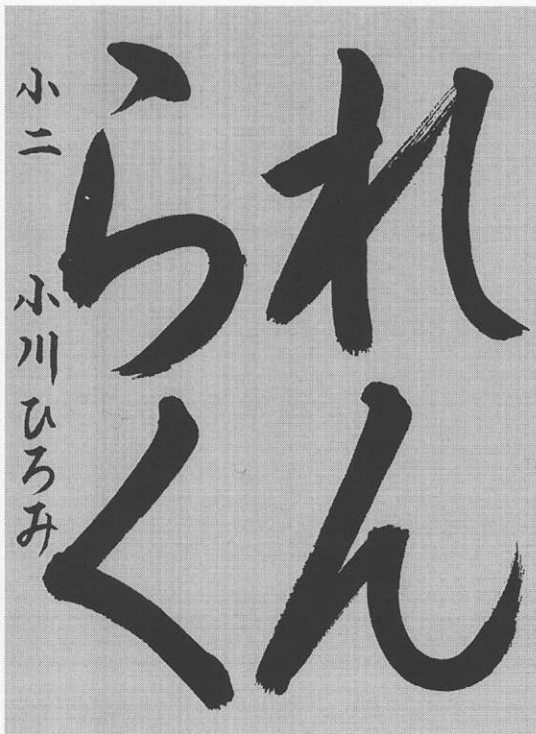 れん
らく
小二 小川ひろみ